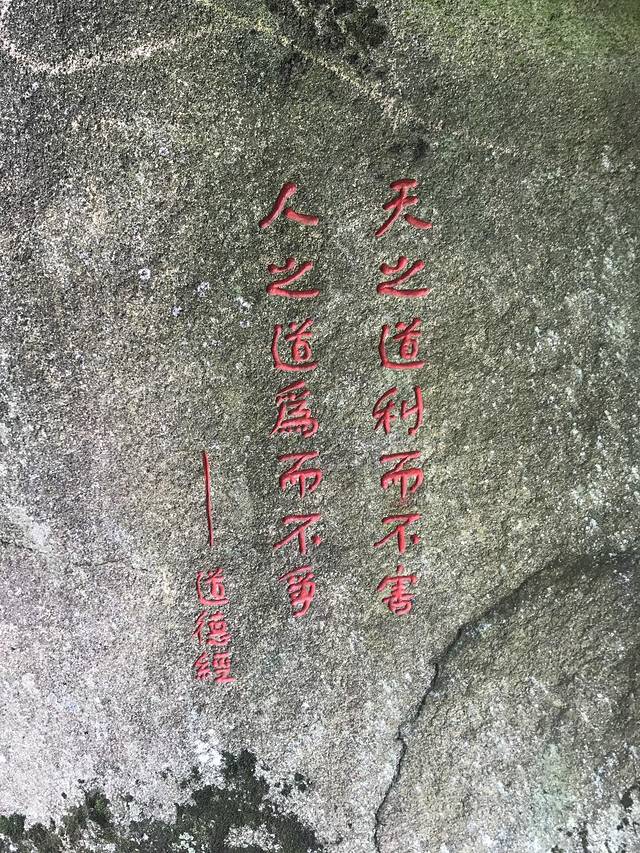 天之道利而不害
人之道爲而不爭
——道德經